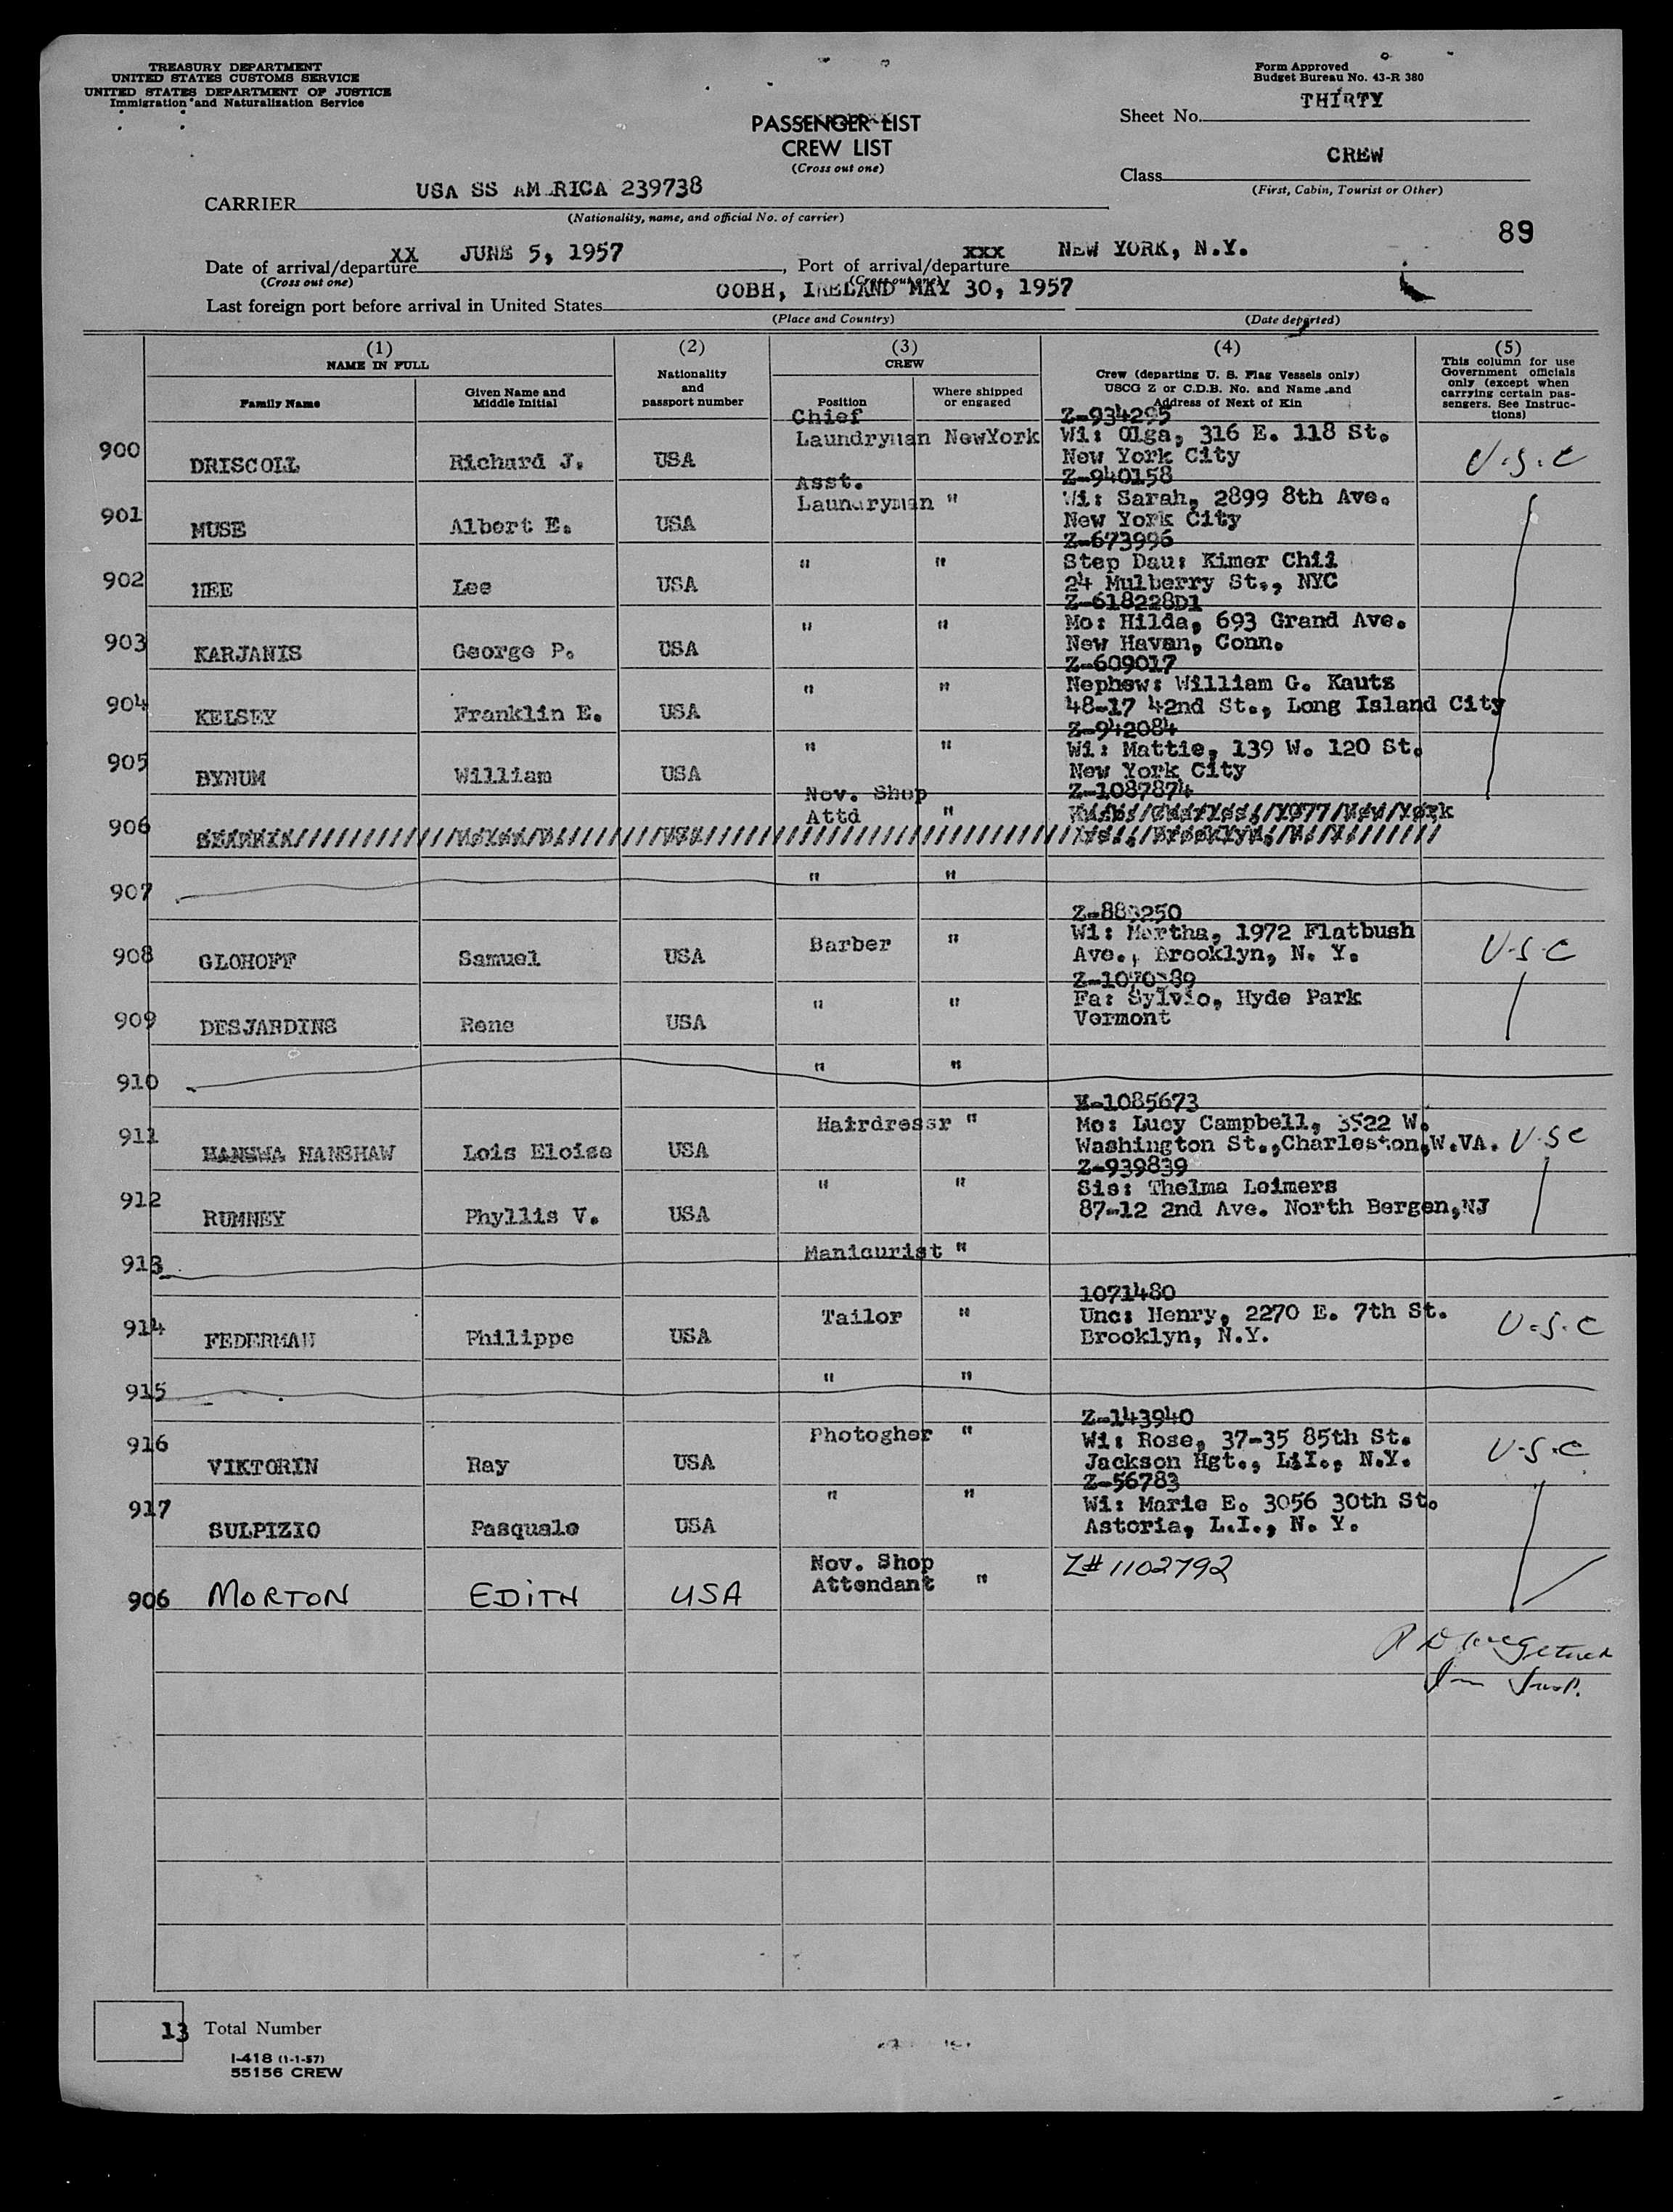 TREASURY DEPARTMENT
UNITED STATES CUSTOMS SERVICE
UNITED STATES DEPARTMENT OF JUSTICE
Immigration and Naturalization Service
Form Approved
Budget Bureau No. 43-R 380
Sheet No. THIRTY
PASSENGER LIST
CREW LIST
(Cross out one)
Class CREW
(First, Cabin, Tourist or Other)
CARRIER USA SS AM RICA 239738
(Nationality, name, and official No. of carrier)
89
Date of arrival/departure XX JUNE 5, 1957, Port of arrival/departure XXX NEW YORK, N.Y.
(Cross out one) (Cross out one)
Last foreign port before arrival in United States OOBH, IRELAND MAY 30, 1957
(Place and Country) (Date departed)
(1) NAME IN FULL
Family Name
Given Name and Middle Initial
(2)
Nationality and passport number
(3) CREW
Position
Where shipped or engaged
(4)
Crew (departing U. S. Flag Vessels only)
USCG Z or C.D.B. No. and Name and
Address of Next of Kin
(5)
This column for use
Government officials
only (except when
carrying certain pas-
sengers. See Instruc-
tions)
900 DRISCOLL Richard J. USA Chief Laundryman NewYork Z-934295
Wi: Olga, 316 E. 118 St.
New York City
U.S.C
901 MUSE Albert E. USA Asst. Laundryman " Z-940158
Wi: Sarah, 2899 8th Ave.
New York City
902 HEE Lee USA " " Z-673996
Step Dau: Kimer Chil
24 Mulberry St., NYC
903 KARJANIS George P. USA " " Z-618228D1
Mo: Hilda, 693 Grand Ave.
New Haven, Conn.
904 KELSEY Franklin E. USA " " Z-609017
Nephew: William G. Kautz
48-17 42nd St., Long Island City
905 BYNUM William USA " " Z-942084
Wi: Mattie, 139 W. 120 St.
New York City
906 Nov. Shop Attd " Z-1087874
907 " "
908 GLOHOFF Samuel USA Barber "
Wi: Martha, 1972 Flatbush
Ave., Brooklyn, N. Y.
U.S.C
909 DESJARDINS Rene USA " "
Fa: Sylvio, Hyde Park
Vermont
910 " "
911 HANSWA HANSHAW Lois Eloise USA Hairdressr " Z-1085673
Mo: Lucy Campbell, 3522 W.
Washington St.,Charleston,W.VA.
U.S.C
912 RUMNEY Phyllis V. USA " " Z-939839
Sis: Thelma Leimers
87-12 2nd Ave. North Bergen,NJ
913 Manicurist "
914 FEDERMAN Philippe USA Tailor " 1071480
Unc: Henry, 2270 E. 7th St.
Brooklyn, N.Y.
U.S.C
915 " "
916 VIKTORIN Ray USA Photogher " Z-143940
Wi: Rose, 37-35 85th St.
Jackson Hgt., L.I., N.Y.
U.S.C
917 SULPIZIO Pasquale USA " " Z-56783
Wi: Marie E. 3056 30th St.
Astoria, L.I., N. Y.
906 MORTON EDITH USA Nov. Shop Attendant " Z# 1102792
13 Total Number
I-418 (1-1-57)
55156 CREW